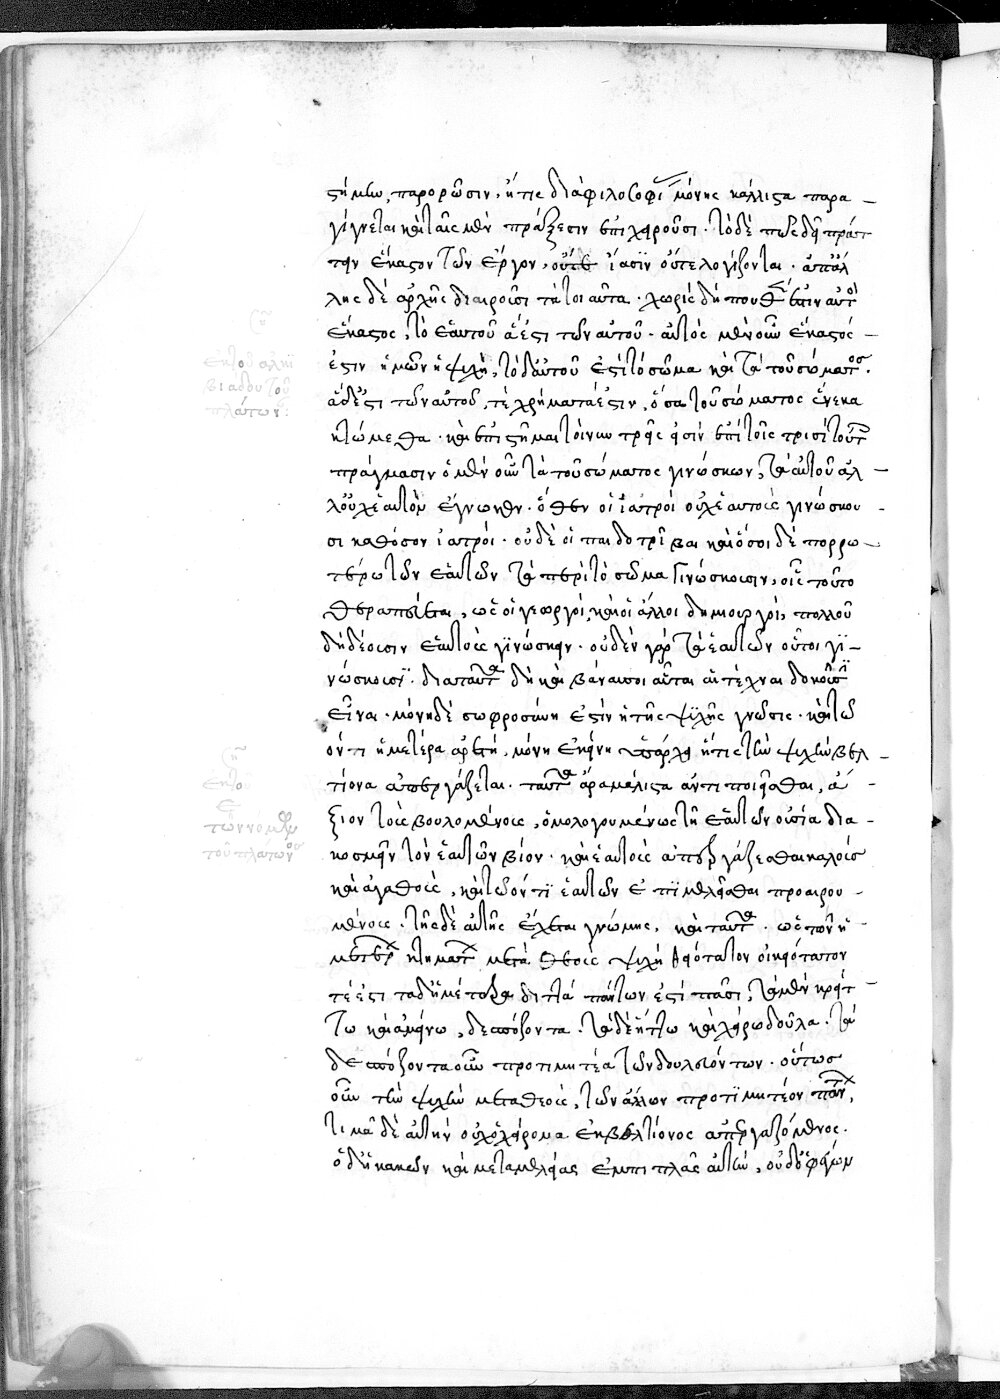 στήμην παρορῶσιν, ἥτις διὰ φιλοσοφίας μόνης κάλλιστα παρα
γίγνεται καὶ ταῖς μὲν πράξεσιν ἐπιχειροῦσι. τὸ δὲ πῶς δεῖ πράτ
τειν ἕκαστον τῶν ἔργων, οὔτε ἴασιν οὔτε λογίζονται. ἀπ' ἄλ
λης δὲ ἀρχῆς διαιροῦσι τὰ τοιαῦτα. χωρὶς δήπου ἐστὶν αὐτὸς
ἕκαστος, τὸ ἑαυτοῦ ἅ ἐστι τῶν αὐτοῦ. αὐτὸς μὲν οὖν ἕκαστός
ἐστιν ἡμῶν ἡ ψυχή, τὸ δ' αὐτοῦ ἐστὶ τὸ σῶμα καὶ τὰ τοῦ σώματος.
ἃ δέ ἐστι τῶν αὐτοῦ, τὰ χρήματά ἐστιν, ὅσα τοῦ σώματος ἕνεκα
κτώμεθα. καὶ ἐπιστῆμαι τοίνυν τρεῖς εἰσὶν ἐπὶ τοῖς τρισὶ τούτοις
πράγμασιν ὁ μὲν οὖν τὰ τοῦ σώματος γινώσκων, τὰ αὑτοῦ ἀλ
λ' οὐχ ἑαυτὸν ἔγνωκεν. ὅθεν οἱ ἰατροὶ οὐχ ἑαυτοὺς γινώσκου
σι καθόσον ἰατροί. οὐδὲ οἱ παιδοτρίβαι καὶ ὅσοι δὲ πορρω
τέρω τῶν ἑαυτῶν τὰ περὶ τὸ σῶμα γινώσκουσιν, οἷς τοῦτο
θεραπεύεται, ὡς οἱ γεωργοί, καὶ οἱ ἄλλοι δημιουργοί, πολλοῦ
δὴ δέουσιν ἑαυτοὺς γινώσκειν. οὐδὲν γὰρ τὰ ἑαυτῶν οὗτοι γι
νώσκουσι. διὰ ταῦτα δὴ καὶ βάναυσοι αὗται αἱ τέχναι δοκοῦσιν
εἶναι. μόνη δὲ σωφροσύνη ἐστὶν ἡ τῆς ψυχῆς γνῶσις. καὶ τῷ
ὄντι ἡμετέρα ἀρετή, μόνη ἐκείνη ὑπάρχει ἥτις τὴν ψυχὴν βελ
τίονα ἀπεργάζεται. ταύτης ἄρα μάλιστα ἀντιποιεῖσθαι, ἄ
ξιον τοῖς βουλομένοις, ὁμολογουμένως τῇ ἑαυτῶν οὐσίᾳ δια
κοσμεῖν τὸν ἑαυτῶν βίον. καὶ ἑαυτοὺς ἀπεργάζεσθαι καλοὺς
καὶ ἀγαθούς, καὶ τῷ ὄντι ἑαυτῶν ἐπιμελεῖσθαι προαιρου
μένοις. τῆς δὲ αὐτῆς ἔχεται γνώμης, καὶ ταῦτα. ὡς τῶν ἡ
μετέρων κτημάτων μετὰ θεοὺς ψυχὴ θειότατον οἰκειότατον
τέ ἐστι τὰ δ' ἡμέτερα διττὰ πάντων ἐστὶ πᾶσι, τὰ μὲν κρείτ
τω καὶ ἀμείνω, δεσπόζοντα. τὰ δὲ ἥττω καὶ χείρω δοῦλα. τὰ
δεσπόζοντα οὖν προτιμητέα τῶν δουλευόντων. οὕτως
οὖν τὴν ψυχὴν μετὰ θεούς, τῶν ἄλλων προτιμητέον πάντων.
τιμᾷ δὲ αὐτὴν οὐχ ὁ χείρονα ἐκ βελτίονος ἀπεργαζόμενος.
ὁ δὴ κακῶν καὶ μεταμελείας ἐμπιπλὰς αὐτήν, οὐδ' ὁ φεύγων
ἐκ τοῦ ἀλκι
βιάδου τοῦ
πλάτωνος
ἐκ τοῦ
ε
τῶν νόμων
τοῦ πλάτωνος